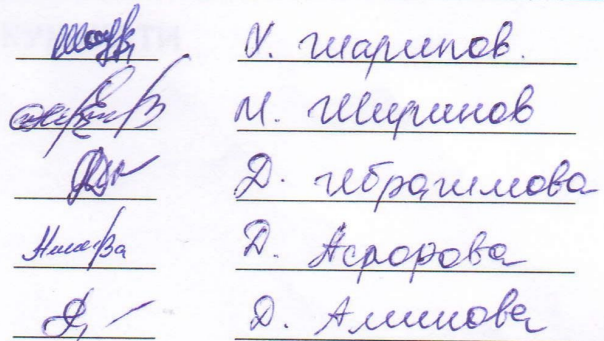 У. Шарипов.
М. Ширинов
Д. Ибрагимова
Д. Асророва
Д. Аминова